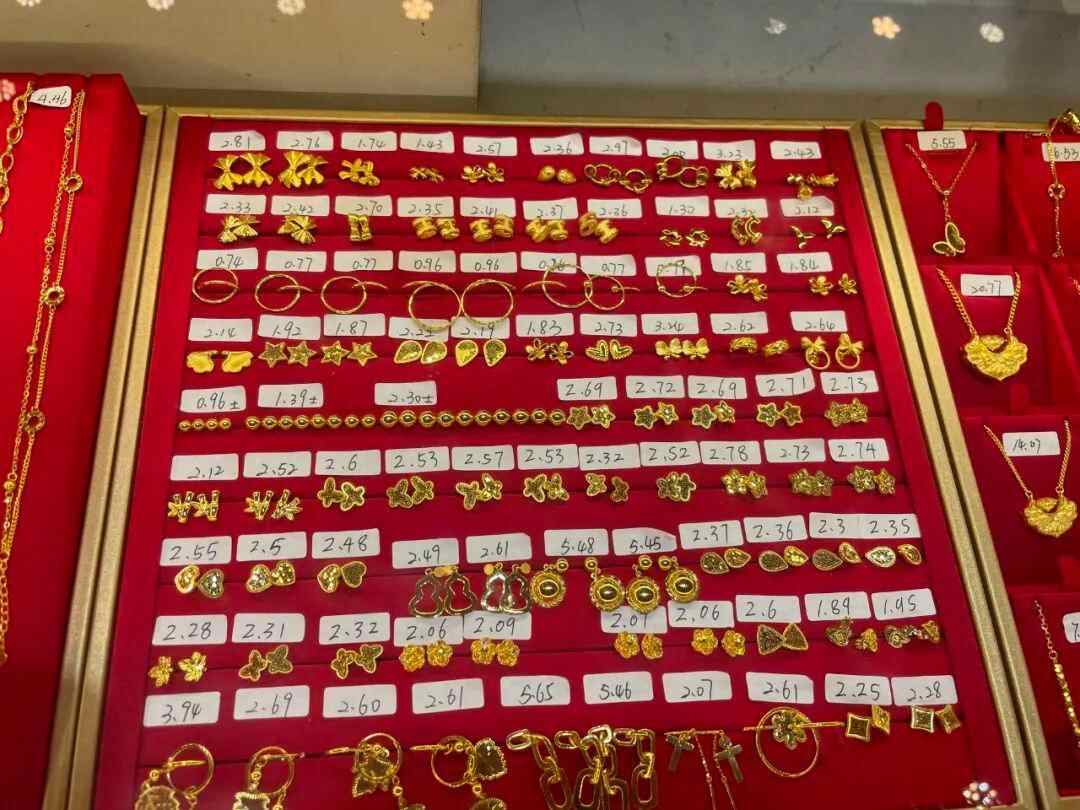 4.46
2.81 2.76 1.74 1.43 2.57 2.36 2.97 3.23 2.43
2.33 2.42 2.70 2.35 2.41 2.37 2.36 1.32 2.12
0.74 0.77 0.77 0.96 0.96 0.77 1.85 1.84
2.14 1.92 1.87 2.19 1.83 2.73 3.24 2.62 2.64
0.96± 1.39± 2.30± 2.69 2.72 2.69 2.71 2.73
2.12 2.52 2.6 2.53 2.57 2.53 2.32 2.52 2.78 2.73 2.74
2.55 2.5 2.48 2.49 2.61 5.48 5.45 2.37 2.36 2.3 2.35
2.28 2.31 2.32 2.06 2.09 2.07 2.06 2.6 1.89 1.95
3.94 2.69 2.60 2.61 5.65 5.46 2.07 2.61 2.25 2.28
5.55
20.77
14.07